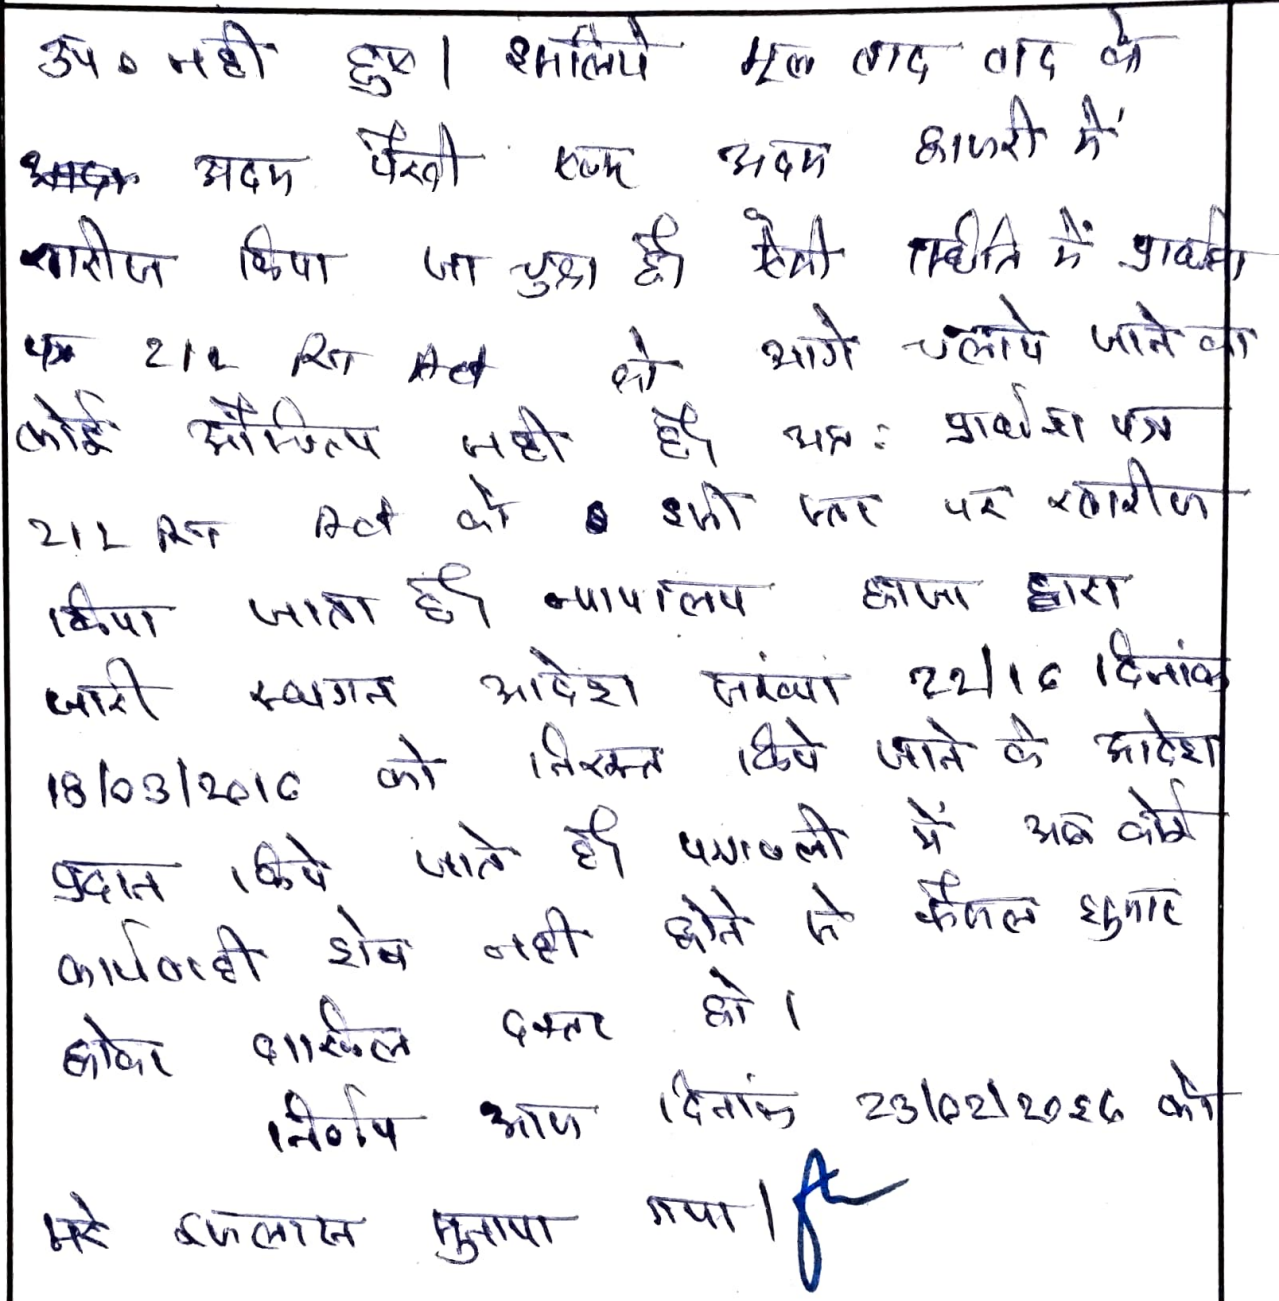 उप० नही हुए। इसलिये मूल वाद वाद के
अदम पैरवी एवम अदम हाजरी में
खारीज किया जा चुका है। ऐसी स्थिति में प्रार्थना
पत्र 212 RT Act को आगे चलाये जाने का
कोई औचित्य नही है। अतः प्रार्थना पत्र
212 RT Act को इसी स्तर पर खारीज
किया जाता है। न्यायालय हाजा द्वारा
जारी स्थगन आदेश संख्या 22/16 दिनांक
18/03/2016 को निरस्त किये जाने के आदेश
प्रदान किये जाते है। पत्रावली में अब कोई
कार्यवाही शेष नही होने से फैसल शुमार
होकर दाखिल दफ्तर हो।
निर्णय आज दिनांक 23/02/2026 को
सरे इजलास सुनाया गया।